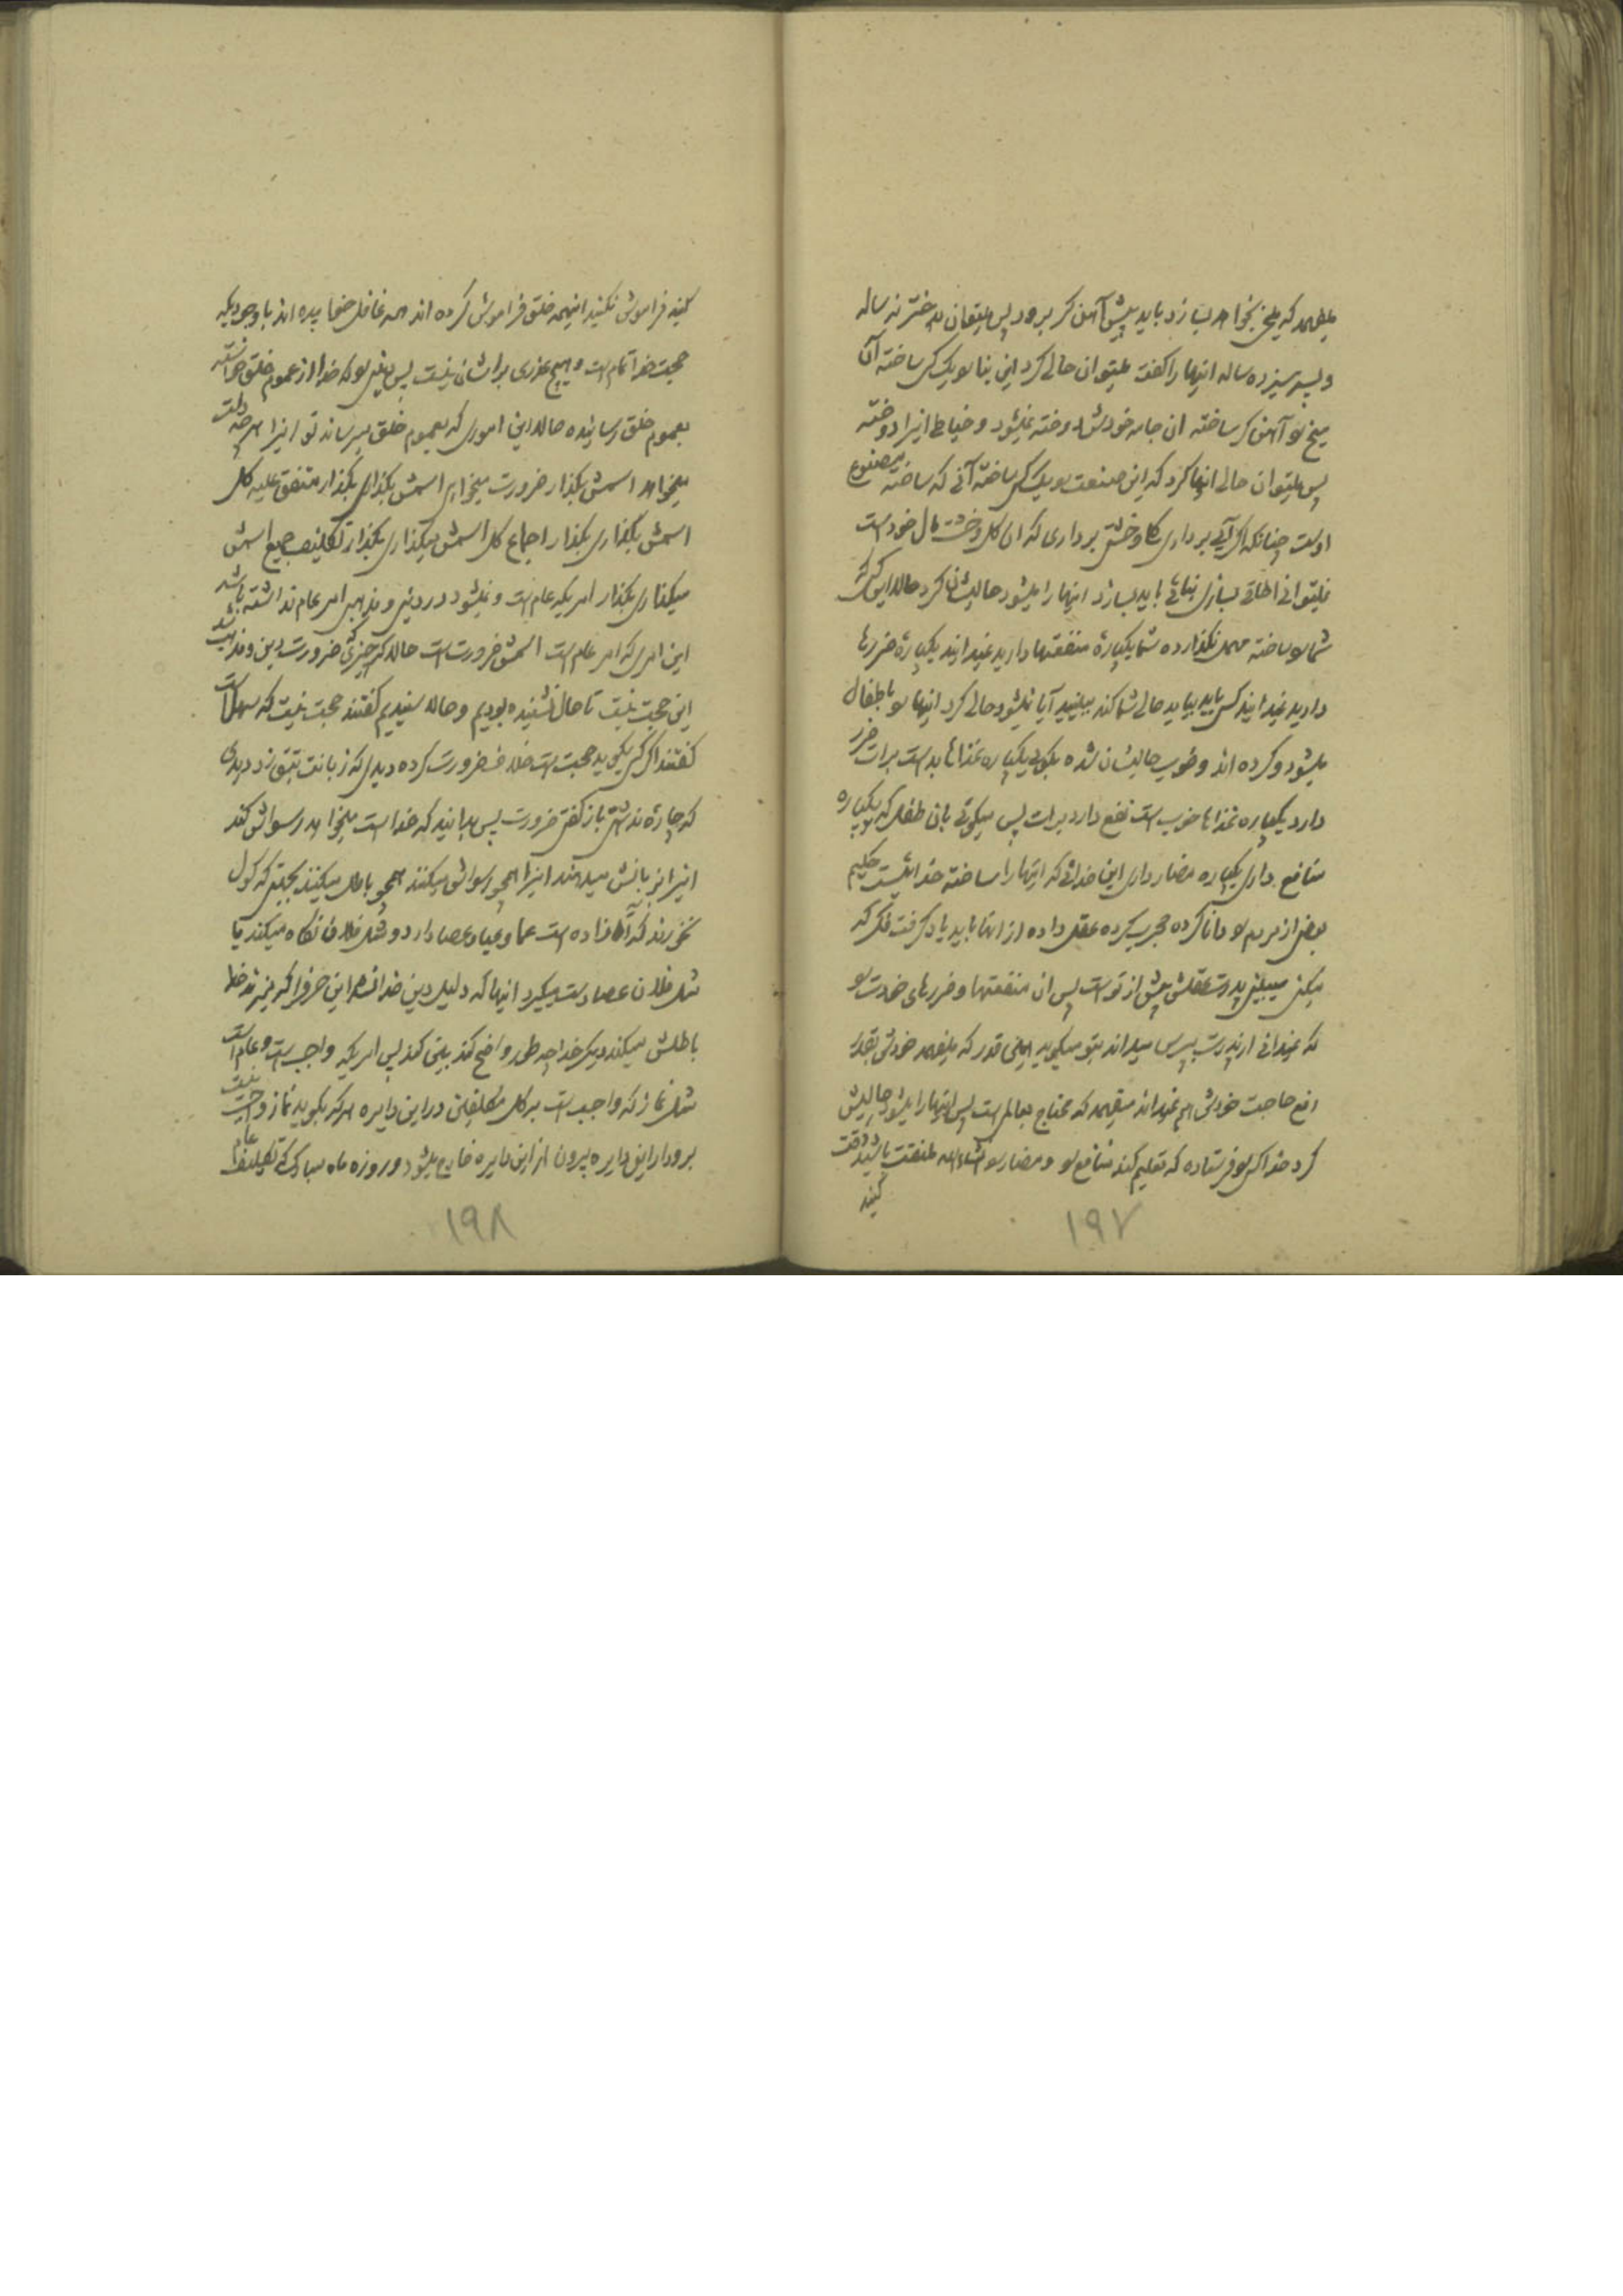 میفهمد که میخ بخواهد بسازد باید پیش آهنگر برود پس میتوان بدختر نه ساله
و پسر سیزده ساله اینها را گفت میتوان حالی کرد این بنا را یک کسی ساخته آن
میخ را آهنگر ساخته ان جامه خودش دوخته نمیشود و خیاط انرا دوخته
پس میتوان حالی انها کرد که این صنعت را یک کسی ساخته آنی که ساخته
اوست چنانکه اگر آبی برداری گل و خشتی برداری که ان گل و خشت مال خود است
نمیتوانی اطاقی بسازی بنائی باید بسازد اینها را میشود حالیشان کرد حالا این کسی که
شما را ساخته مهمل نگذارده شما یکپاره منفعتها دارید نمیدانید یکپاره ضررها
دارید نمیدانید کسی باید بیاید حالی شما کند ببینید آیا نمیشود حالی کرد اینها را باطفال
میشود و کرده اند و خوب حالیشان شده بگوئید یکپاره غذاها بد است برات ضرر
دارد یکپاره غذاها خوب است نفع دارد برات پس میگوئی بان طفل که تو یکپاره
منافع داری یکپاره مضار داری این خدائی که اینها را ساخته خدائیست حکیم
بعضی از مردم را دانا کرده مجرب کرده عقل داده از انها باید یاد گرفت فکر که
میکنی میبینی پدرت عقلش بیش از تو است پس ان منفعتها و ضررهای خودت را
که نمیدانی از پدرت بپرس میداند بتو میگوید همینقدر که میفهمد خودش بقدر
رفع حاجت خودش هم نمیداند میفهمد که محتاج بعالم است پس اینها را میشود حالیش
کرد خدا کسی را فرستاده که تعلیم کند منافع را و مضار را انشاءالله ملتفت باشید دقت
کنید
۱۹۷
کنید فراموش نکنید اینهمه خلق فراموش کرده اند همه غافل خوابیده اند با وجودیکه
حجت خدا تمام است و هیچ عذری براشان نیست پس چیزی را که خدا از عموم خلق خواسته
بعموم خلق رسانیده حالا این اموری که بعموم خلق میرساند تو انرا هرچه دلت
میخواهد اسمش بگذار ضرورت میخواهی اسمش بگذاری بگذار متفق علیه کل
اسمش بگذاری بگذار اجماع کل اسمش میگذاری بگذار تکلیف جمیع اسمش
میگذاری بگذار امریکه عام است و نمیشود در دینی و مذهبی امر عام نداشته باشد
این امری که امر عام است اسمش ضرورت است حالا اگر چیزی ضرورت دین و مذهب شد
این حجت نیست تا حال نشنیده بودیم و حالا شنیدیم گفتند حجت نیست که سهل است
گفتند اگر کسی بگوید حجت است خلاف ضرورت کرده دیدی که زبانت بتپق زد دیدی
که چاره نداشتی باز گفتی ضرورت پس بدانید که خداست میخواهد رسواش کند
اینرا بزبانش میدهند اینرا همچو رسواش میکنند همچو باطل میکنند بجهتی که گول
نخورند که آقا زاده است عما و عبا و عصا دارد و مثل فلان نگاه میکند یا
مثل فلان عصا دست میگیرد اینها که دلیل دین خدا نشد این حرفها را که میزند خدا
باطلش میکند دیگر خدا چه طور واضح کند بینی کند پس امریکه واجب است و عام است
مثل نماز که واجب است بر کل مکلفین در این دایره هرکه بگوید نماز واجب نیست
برود از این دایره بیرون از این دایره خارج میشود و روزه ماه مبارک که تکلیف عام
۱۹۸